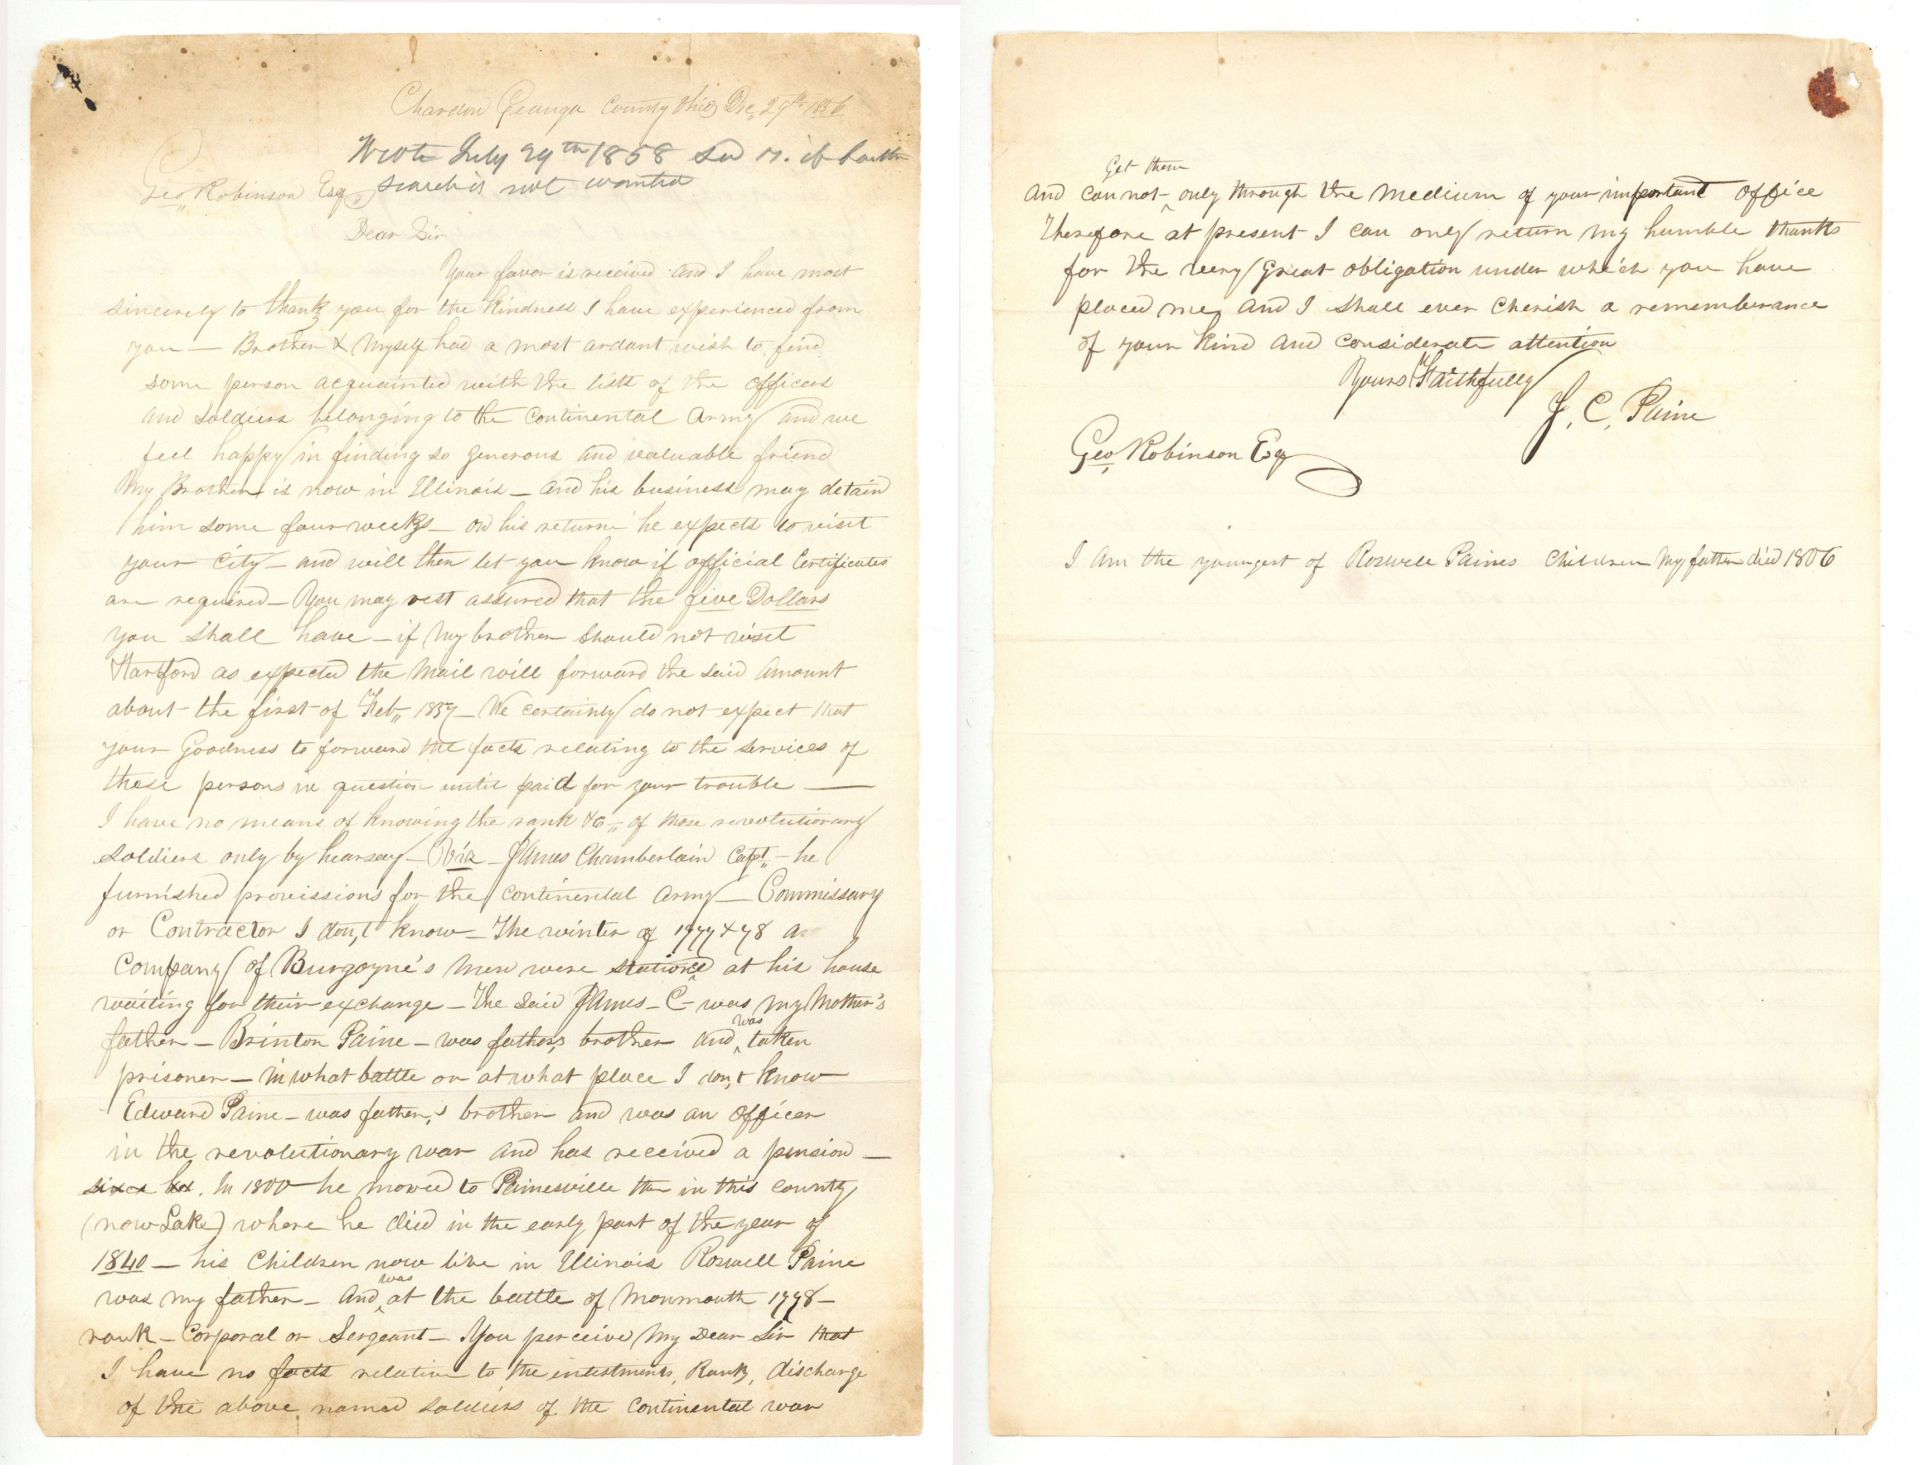 Chardon Geauga County Ohio Dec, 29th 1856
Wrote July 29th 1858 if
search is not wanted
Geo Robinson Esq
Dear Sir
Your favor is received and I have most
sincerely to thank you for the kindness I have experienced from
you — Brother & Myself had a most ardant wish to find
some person acquainted with the lists of the officers
and soldiers belonging to the Continental Army and we
feel happy in finding so generous and valuable friend
My Brother is now in Illinois — and his business may detain
him some four weeks — on his return he expects to visit
your City — and will then let you know if official Certificates
are required — You may rest assured that the five Dollars
you shall have — if my brother should not visit
Hartford as expected the mail will forward the said amount
about the first of Feb,, 1857 — We certainly do not expect that
your Goodness to forward the facts relating to the services of
these persons in question until paid for your trouble —
I have no means of knowing the rank &c of those revolutionary
soldiers only by hearsay — Viz — James Chamberlain Capt,, — he
furnished provissions for the continental army — Commissary
or Contractor I don,t know — The winter of 1777 & 78 a
Company of Burgoyne's men were stationed at his house
waiting for their exchange — The said James — C — was my Mother's
father — Brinton Paine — was father,s brother and was taken
prisoner — in what battle or at what place I don,t know
Edward Paine — was father,s brother and was an officer
in the revolutionary war and has received a pension —
In 1800 he moved to Painesville then in this county
(now Lake) where he died in the early part of the year of
1840 — his children now live in Illinois Roswell Paine
was my father — And was at the battle of Monmouth 1778 —
rank — Corporal or Sergeant — You perceive my Dear Sir that
I have no facts relation to the enlistments, Rank, discharge
of the above named soldiers of the continental war
and can not get them only through the medium of your important office
Therefore at present I can only return my humble thanks
for the very great obligation under which you have
placed me and I shall ever cherish a rememberance
of your kind and considerate attention
Yours Faithfully
J. C. Paine
Geo Robinson Esq
I am the youngest of Roswell Paines Children My father died 1806